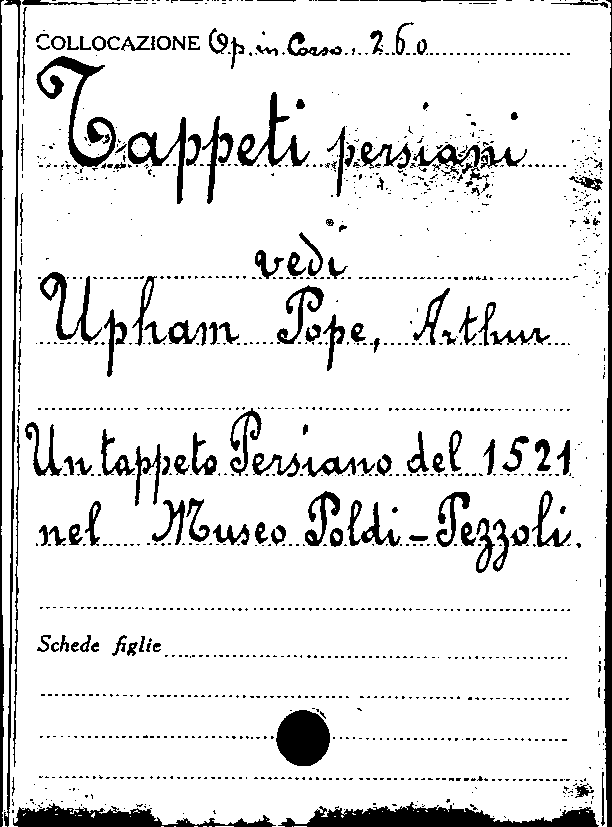 COLLOCAZIONE Op. in Corso. 260
Tappeti persiani
vedi
Upham Pope, Arthur
Un tappeto Persiano del 1521
nel Museo Poldi-Pezzoli.
Schede figlie